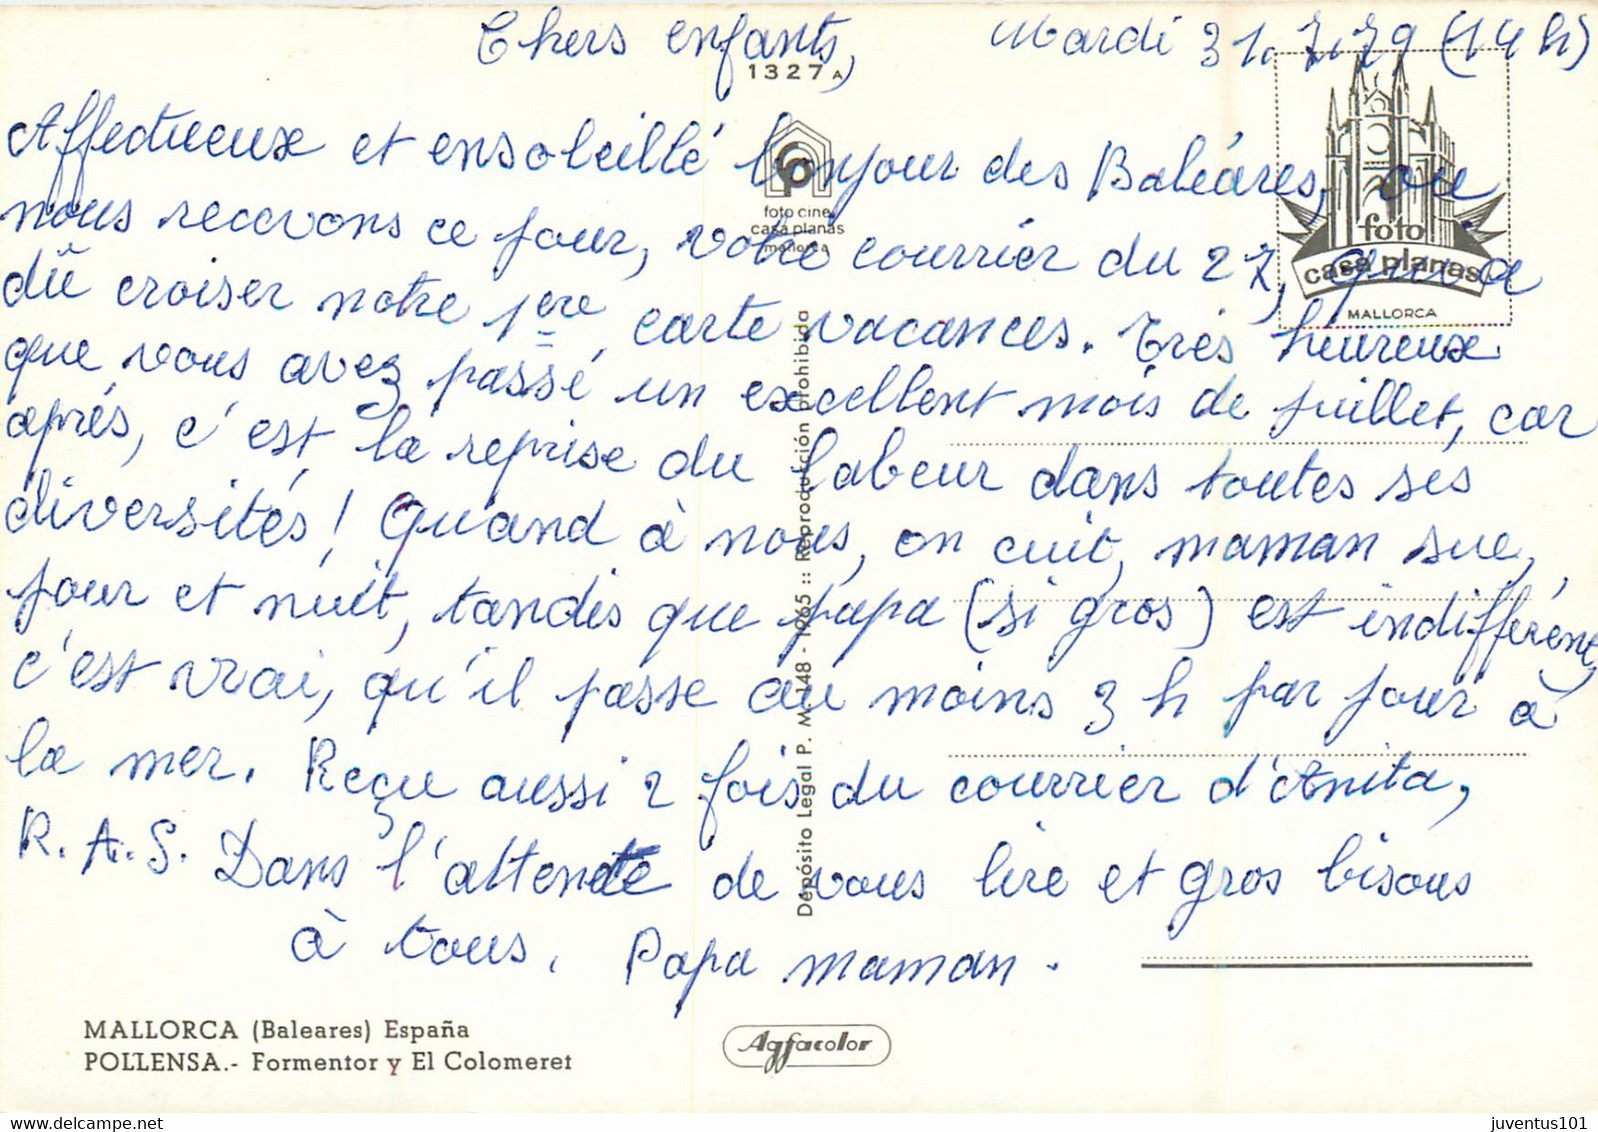 Chers enfants, Mardi 31.7.79 (14 h)
1327 A
Affectueux et ensoleillé bonjour des Baléares, où
nous recevons ce jour, votre courrier du 27, qui a
dû croiser notre 1ere carte vacances. Très heureux
que vous avez passé un excellent mois de juillet, car
après, c'est la reprise du labeur dans toutes ses
diversités! Quand à nous, on cuit, maman sue,
jour et nuit, tandis que papa (si gros) est indifférent,
c'est vrai, qu'il passe au moins 3 h par jour à
la mer. Reçu aussi 2 fois du courrier d'Anita,
R.A.S. Dans l'attente de vous lire et gros bisous
à tous. Papa maman.
foto cine
casa planas
mallorca
foto
casa planas
MALLORCA
Depósito Legal P. M. 148 - 1965 :: Reproducción prohibida
MALLORCA (Baleares) España
POLLENSA.- Formentor y El Colomeret
Agfacolor
juventus101